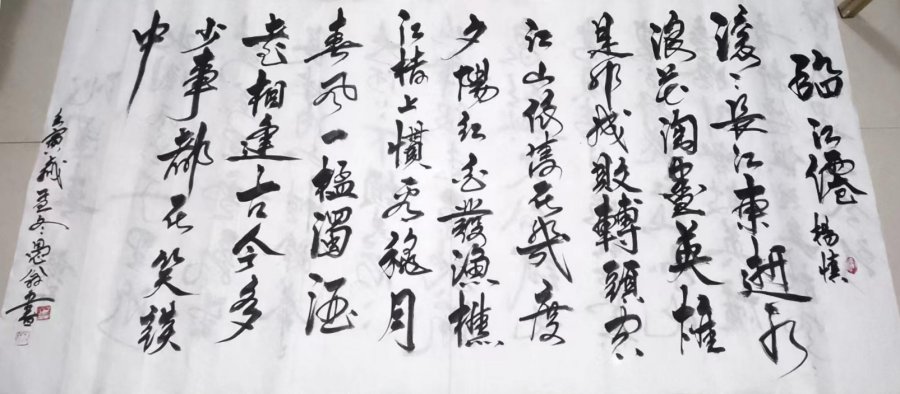 臨江僊 楊慎
滾〻長江東逝水
浪花淘盡英雄
是非成敗轉頭空
江山依舊在幾度
夕陽紅白發漁樵
江渚上慣看穐月
春風一榼濁酒
喜相逢古今多
少事都在笑談
中
冬愚翁書